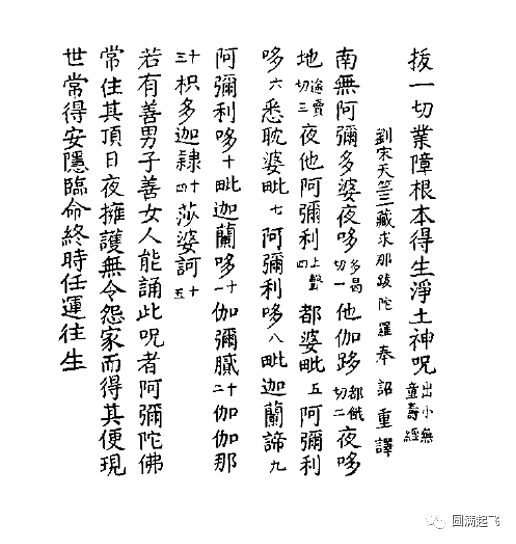 拔一切業障根本得生淨土神呪出小無量壽經
劉宋天竺三藏求那跋陀羅奉 詔重譯
南無阿彌多婆夜哆多曷切一他伽跢都餓切二夜哆
地途賣切三夜他阿彌利上聲四都婆毗五阿彌利
哆六悉耽婆毗七阿彌利哆八毗迦蘭諦九
阿彌利哆十毗迦蘭哆十一伽彌膩十二伽伽那
十三枳多迦隸十四莎婆訶十五
若有善男子善女人能誦此呪者阿彌陀佛
常住其頂日夜擁護無令怨家而得其便現
世常得安隱臨命終時任運往生
圆满起飞